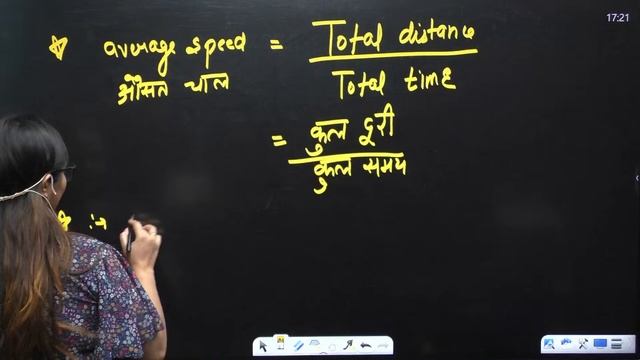 17:21
☆ average speed = Total distance / Total time
औसत चाल
= कुल दूरी / कुल समय
:→